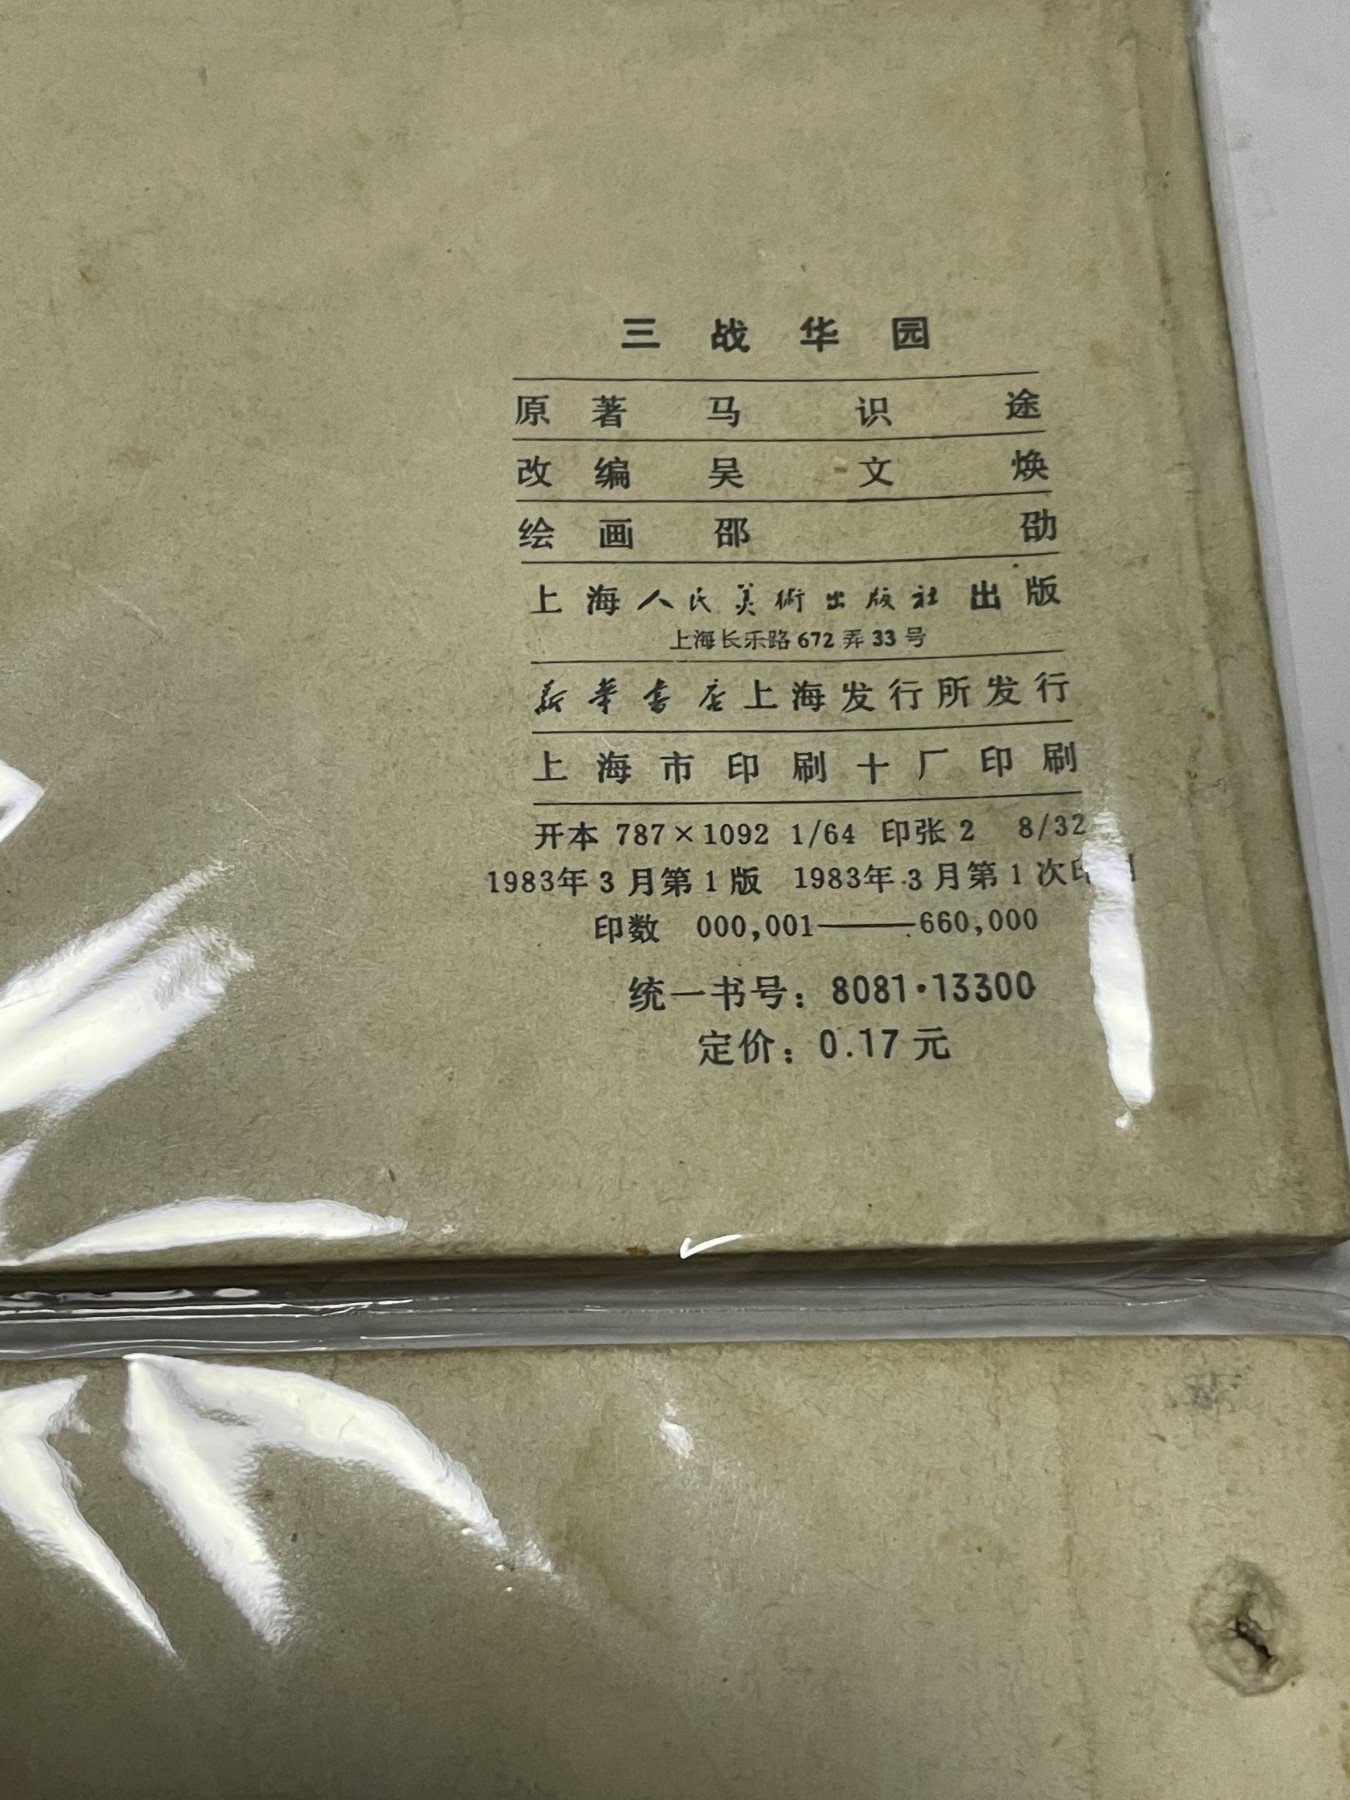 三战华园
原著 马识途
改编 吴文焕
绘画 邵劭
上海人民美術出版社出版
上海长乐路672弄33号
新华书店上海发行所发行
上海市印刷十厂印刷
开本 787×1092 1/64 印张 2 8/32
1983年3月第1版 1983年3月第1次印刷
印数 000,001——660,000
统一书号：8081·13300
定价：0.17元